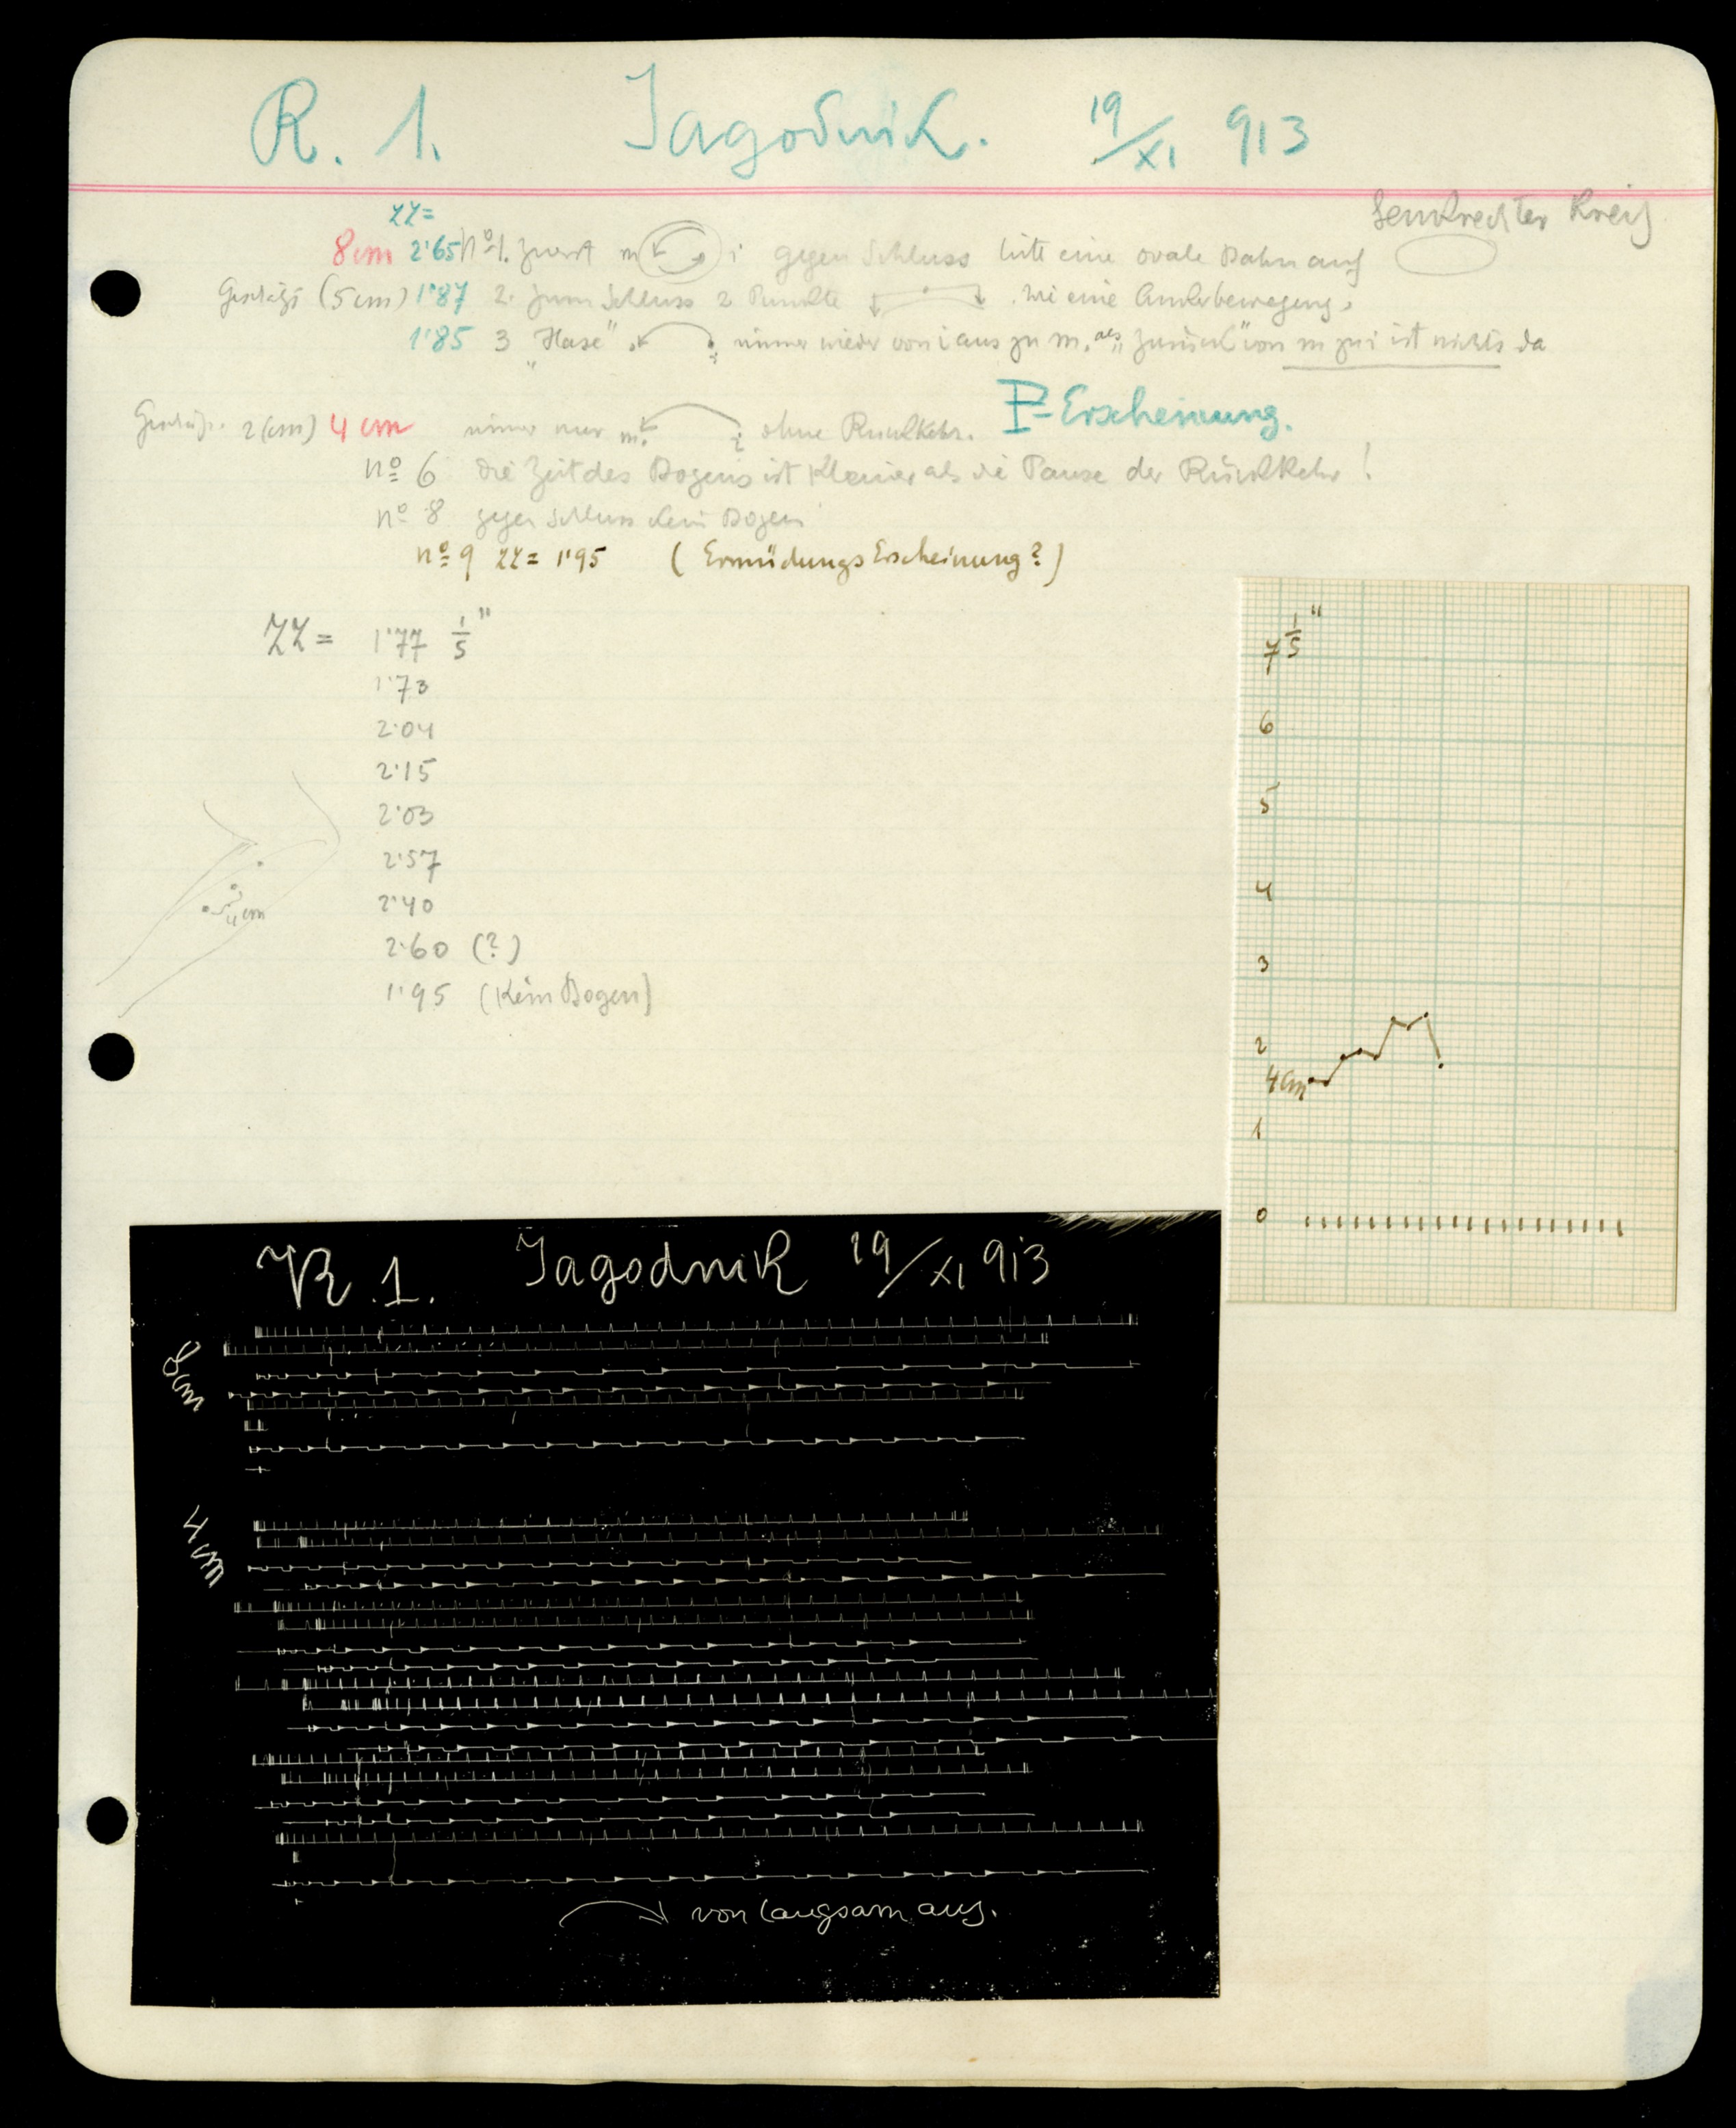 R. 1. Jagodnik. 19/XI 913
Senkrechter Kreis
ZZ=
8cm 2'65 nº 1. zuerst m i gegen Schluss tritt eine ovale Bahn auf
Geschätzt (5cm) 1'87 2. zum Schluss 2 Punkte . wie eine Ankerbewegung.
1'85 3 "Hase" immer wieder von i aus zu m, als "zurück" von m zu i ist nichts da
Geschätzt. 2(cm) 4 cm immer nur m. i ohne Rückkehr. P-Erscheinung.
nº 6 die Zeit des Bogens ist kleiner als die Pause der Rückkehr!
nº 8 gegen Schluss kein Bogen
nº 9 ZZ = 1'95 (Ermüdungs Erscheinung?)
ZZ = 1'77 1/5"
1'73
2'04
2'15
2'03
2'57
2'40
2'60 (?)
1'95 (Kein Bogen)
4cm
7 1/5"
6
5
4
3
2
4cm
1
0
R.1. Jagodnik 19/XI 913
8cm
4cm
von langsam aus.